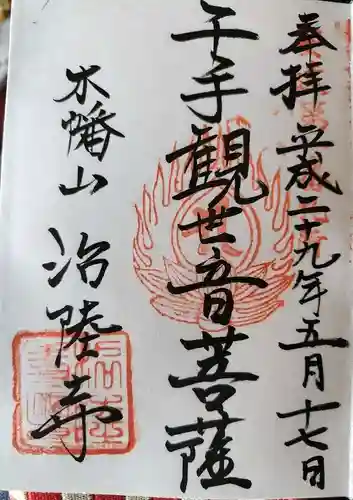 奉拝 平成二十九年五月十七日
千手観世音菩薩
木幡山
治陸寺